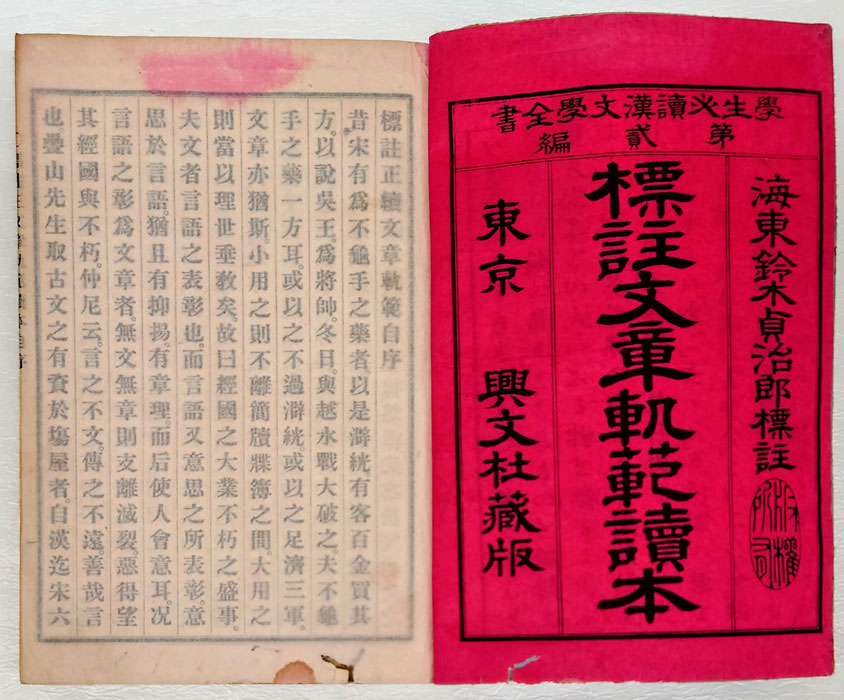 學生必讀漢文學全書
第貳編
海東鈴木貞治郎標註
版權所有
標註文章軌範讀本
東京 興文社藏版
標註正續文章軌範自序
昔宋有爲不龜手之藥者。以是澼絖有客百金買其
方。以說吳王。爲將帥。冬日。與越水戰大破之。夫不龜
手之藥一方耳。或以之不過澼絖或以之足濟三軍。
文章亦猶斯。小用之則不離簡牘牒簿之間。大用之
則當以理世垂敎矣。故曰經國之大業不朽之盛事。
夫文者言語之表彰也。而言語又意思之所表彰。意
思於言語。猶且有抑揚。有章理。而后使人會意耳。况
言語之彰爲文章者。無文無章則支離滅裂惡得望
其經國與不朽。仲尼云。言之不文。傳之不遠。善哉言
也疊山先生取古文之有資於塲屋者。自漢迄宋六